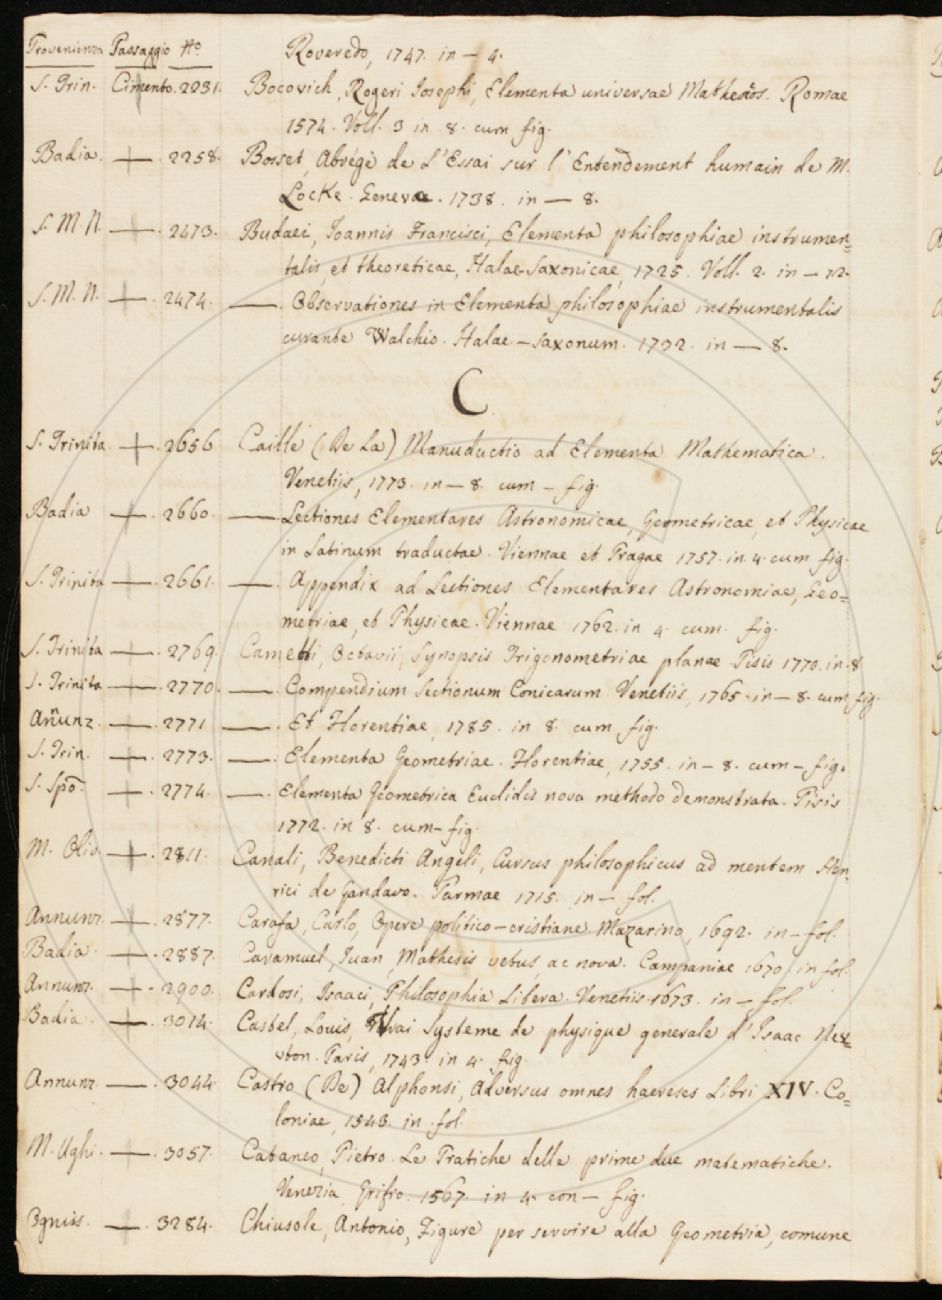 Provenienza Passaggio No Roveredo, 1747. in — 4.
S. Trin. Cimento. 2231. Bocovich, Rogeri Josephi, Elementa universae Matheseos. Romae
1574. Voll. 3 in 8. cum fig.
Badia. — . 2258. Bosset, Abrégé de L'Essai sur l'Entendement humain de M.
Locke. Genevae. 1738. in — 8.
S. M. N. — . 2473. Budaei, Joannis Francisci, Elementa philosophiae instrumen=
talis, et theoreticae, Halae-Saxonicae, 1725. Voll. 2. in — 12.
S. M. N. — . 2474. — . Observationes in Elementa philosophiae instrumentalis
curante Walchio. Halae — Saxonum. 1732. in — 8.
C.
S. Trinita — . 2656 Caille (De La) Manuductio ad Elementa Mathematica.
Venetiis, 1773. in — 8. cum — fig.
Badia — . 2660. — . Lectiones Elementares Astronomicae, Geometricae, et Physicae
in Latinum traductae. Viennae et Pragae 1757. in 4. cum fig.
S. Trinita — . 2661. — . Appendix ad Lectiones Elementares Astronomiae, Geo=
metriae, et Physicae. Viennae 1762. in 4. cum. fig.
S. Trinita — . 2769. Cametti, Octavii, Synopsis Trigonometriae planae. Pisis 1770. in. 8
S. Trinita — . 2770. — . Compendium Sectionum Conicarum. Venetiis, 1765. in — 8. cum fig.
Añunz. — . 2771 — . Et Florentiae, 1785. in 8. cum fig.
S. Trin. — . 2773. — . Elementa Geometriae. Florentiae, 1755. in — 8. cum — fig.
S. Spõ. — . 2774. — . Elementa Geometrica Euclidis nova methodo demonstrata. Pisis
1772. in 8. cum — fig.
M. Oliv. — . 2811. Canali, Benedicti Angeli, Cursus philosophicus ad mentem Hen=
rici de Gandavo. Parmae 1715. in — fol.
Annunz. — . 2877. Carafa, Carlo, Opere politico — cristiane. Mazarino, 1692. in — fol.
Badia. — . 2887. Caramuel, Juan, Mathesis vetus, ac nova. Campaniae 1670. in fol.
Annunz. — . 2900. Cardosi, Isaaci, Philosophia Libera. Venetiis. 1673. in — fol.
Badia. — . 3014. Castel, Louis, Vrai Systeme de physique generale d'Isaac New=
vton. Paris, 1743. in 4. fig.
Annunz. — . 3044. Castro (De) Alphonsi, Adversus omnes haereses Libri XIV. Co=
loniae, 1543. in fol.
M. Ughi. — . 3057. Cataneo, Pietro. Le Pratiche delle prime due matematiche.
Venezia, Grifio. 1567. in 4. con — fig.
— . 3284. Chiusole, Antonio, Figure per servire alla Geometria, comune